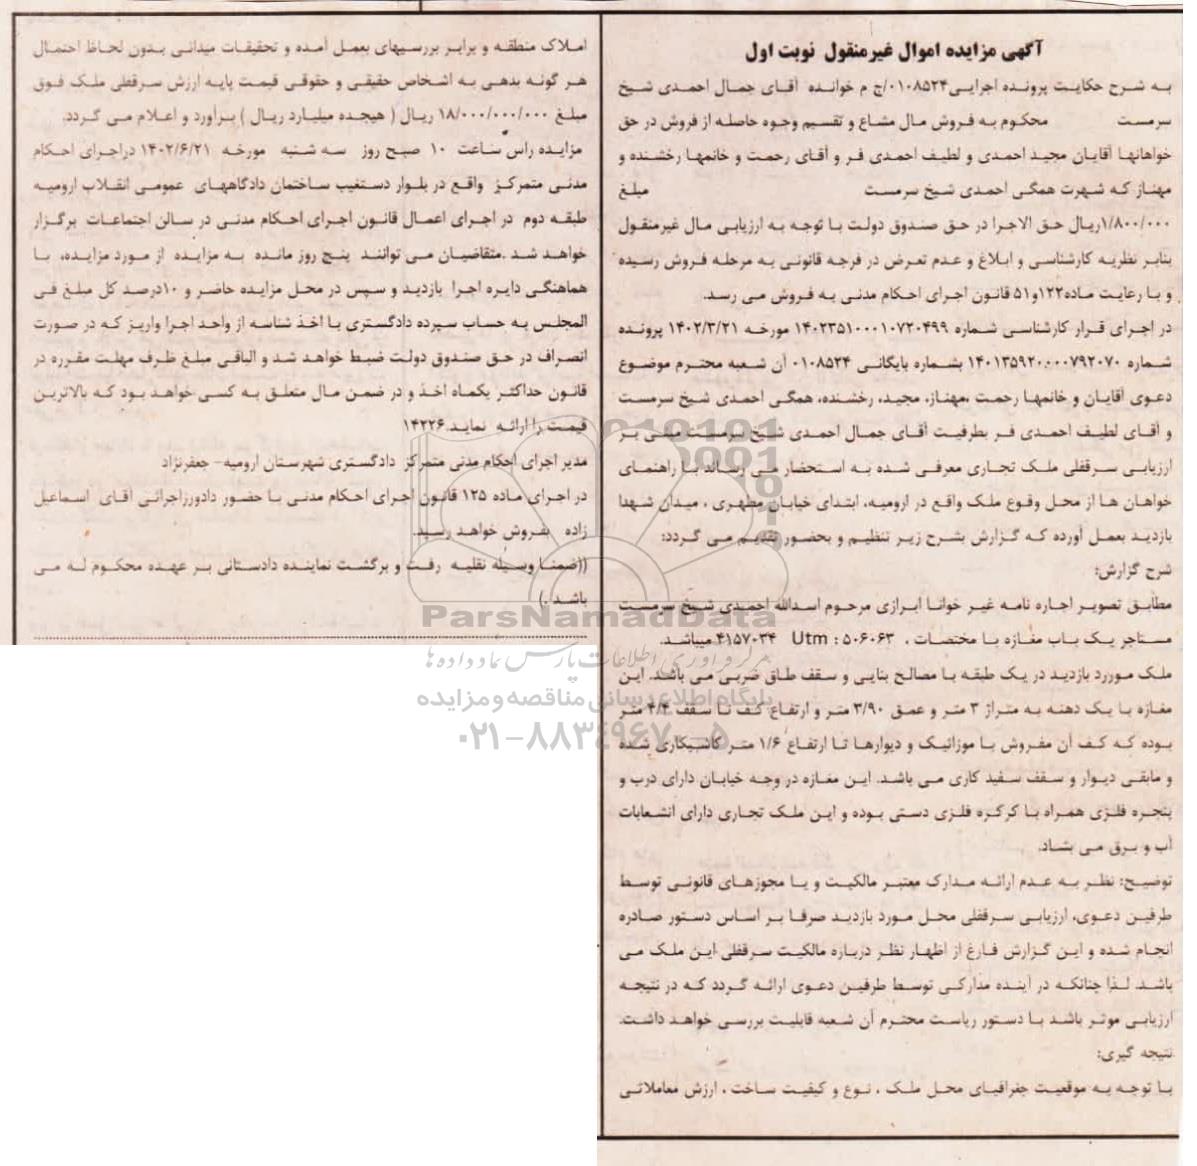 آگهی مزایده اموال غیرمنقول نوبت اول
به شرح حکایت پرونده اجرایی۰۱۰۸۵۲۴/ج م خوانده آقای جمال احمدی شیخ
سرمست محکوم به فروش مال مشاع و تقسیم وجوه حاصله از فروش در حق
خواهانها آقایان مجید احمدی و لطیف احمدی فر و آقای رحمت و خانمها رخشنده و
مهناز که شهرت همگی احمدی شیخ سرمست مبلغ
۱/۸۰۰/۰۰۰ریال حق الاجرا در حق صندوق دولت با توجه به ارزیابی مال غیرمنقول
بنابر نظریه کارشناسی و ابلاغ و عدم تعرض در فرجه قانونی به مرحله فروش رسیده
و با رعایت ماده۱۲۲و۵۱ قانون اجرای احکام مدنی به فروش می رسد.
در اجرای قرار کارشناسی شماره ۱۴۰۲۳۵۱۰۰۰۱۰۷۲۰۴۹۹ مورخه ۱۴۰۲/۳/۲۱ پرونده
شماره ۱۴۰۱۳۵۹۲۰۰۰۰۷۹۲۰۷۰ بشماره بایگانی ۰۱۰۸۵۲۴ آن شعبه محترم موضوع
دعوی آقایان و خانمها رحمت ،مهناز، مجید، رخشنده، همگی احمدی شیخ سرمست
و آقای لطیف احمدی فر بطرفیت آقای جمال احمدی شیخ سرمست مبنی بر
ارزیابی سرقفلی ملک تجاری معرفی شده به استحضار می رساند با راهنمای
خواهان ها از محل وقوع ملک واقع در ارومیه، ابتدای خیابان مطهری ، میدان شهدا
بازدید بعمل آورده که گزارش بشرح زیر تنظیم و بحضور تقدیم می گردد:
شرح گزارش:
مطابق تصویر اجاره نامه غیر خوانا ابرازی مرحوم اسدالله احمدی شیخ سرمست
مستاجر یک باب مغازه با مختصات ، Utm : ۵۰۶۰۶۳ ۴۱۵۷۰۳۴ میباشد.
ملک موررد بازدید در یک طبقه با مصالح بنایی و سقف طاق ضربی می باشد. این
مغازه با یک دهنه به متراژ ۳ متر و عمق ۳/۹۰ متر و ارتفاع کف تا سقف ۴/۴ متر
بوده که کف آن مفروش با موزائیک و دیوارها تا ارتفاع ۱/۶ متر کاشیکاری شده
و مابقی دیوار و سقف سفید کاری می باشد. این مغازه در وجه خیابان دارای درب و
پنجره فلزی همراه با کرکره فلزی دستی بوده و این ملک تجاری دارای انشعابات
آب و برق می بشاد.
توضیح: نظر به عدم ارائه مدارک معتبر مالکیت و یا مجوزهای قانونی توسط
طرفین دعوی، ارزیابی سرقفلی محل مورد بازدید صرفا بر اساس دستور صادره
انجام شده و این گزارش فارغ از اظهار نظر درباره مالکیت سرقفلی این ملک می
باشد. لذا چنانکه در آینده مدارکی توسط طرفین دعوی ارائه گردد که در نتیجه
ارزیابی موثر باشد با دستور ریاست محترم آن شعبه قابلیت بررسی خواهد داشت.
نتیجه گیری:
با توجه به موقعیت جغرافیای محل ملک ، نوع و کیفیت ساخت ، ارزش معاملاتی
املاک منطقه و برابر بررسیهای بعمل آمده و تحقیقات میدانی بدون لحاظ احتمال
هر گونه بدهی به اشخاص حقیقی و حقوقی قیمت پایه ارزش سرقفلی ملک فوق
مبلغ ۱۸/۰۰۰/۰۰۰/۰۰۰ ریال ( هیجده میلیارد ریال ) برآورد و اعلام می گردد.
مزایده راس ساعت ۱۰ صبح روز سه شنبه مورخه ۱۴۰۲/۶/۲۱ دراجرای احکام
مدنی متمرکز واقع در بلوار دستغیب ساختمان دادگاههای عمومی انقلاب ارومیه
طبقه دوم در اجرای اعمال قانون اجرای احکام مدنی در سالن اجتماعات برگزار
خواهد شد .متقاضیان می توانند پنج روز مانده به مزایده از مورد مزایده، با
هماهنگی دایره اجرا بازدید و سپس در محل مزایده حاضر و ۱۰درصد کل مبلغ فی
المجلس به حساب سپرده دادگستری با اخذ شناسه از واحد اجرا واریز که در صورت
انصراف در حق صندوق دولت ضبط خواهد شد و الباقی مبلغ ظرف مهلت مقرره در
قانون حداکثر یکماه اخذ و در ضمن مال متعلق به کسی خواهد بود که بالاترین
قیمت را ارائه نماید.۱۴۲۲۶
مدیر اجرای احکام مدنی متمرکز دادگستری شهرستان ارومیه- جعفرنژاد
در اجرای ماده ۱۲۵ قانون اجرای احکام مدنی با حضور دادورزاجرائی آقای اسماعیل
زاده بفروش خواهد رسید.
((ضمنا وسیله نقلیه رفت و برگشت نماینده دادستانی بر عهده محکوم له می
باشد .)
ParsNamadData
مرکز فرآوری اطلاعات پارس نماد داده ها
پایگاه اطلاع رسانی مناقصه و مزایده
۰۲۱-۸۸۳۴۹۶۷۰-۵